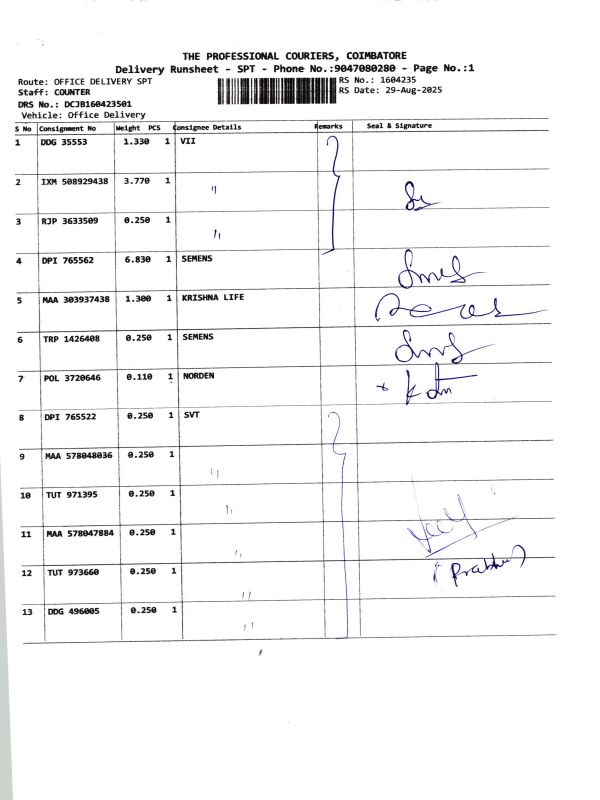 THE PROFESSIONAL COURIERS, COIMBATORE
Delivery Runsheet - SPT - Phone No.:9047080280 - Page No.:1
Route: OFFICE DELIVERY SPT RS No.: 1604235
Staff: COUNTER RS Date: 29-Aug-2025
DRS No.: DCJB160423501
Vehicle: Office Delivery
S No Consignment No Weight PCS Consignee Details Remarks Seal & Signature
1 DDG 35553 1.330 1 VII
2 IXM 508929438 3.770 1 "
3 RJP 3633509 0.250 1 "
4 DPI 765562 6.830 1 SEMENS
5 MAA 303937438 1.300 1 KRISHNA LIFE
6 TRP 1426408 0.250 1 SEMENS
7 POL 3720646 0.110 1 NORDEN
8 DPI 765522 0.250 1 SVT
9 MAA 578048036 0.250 1 "
10 TUT 971395 0.250 1 "
11 MAA 578047884 0.250 1 "
12 TUT 973660 0.250 1 " (Prabhu)
13 DDG 496005 0.250 1 "